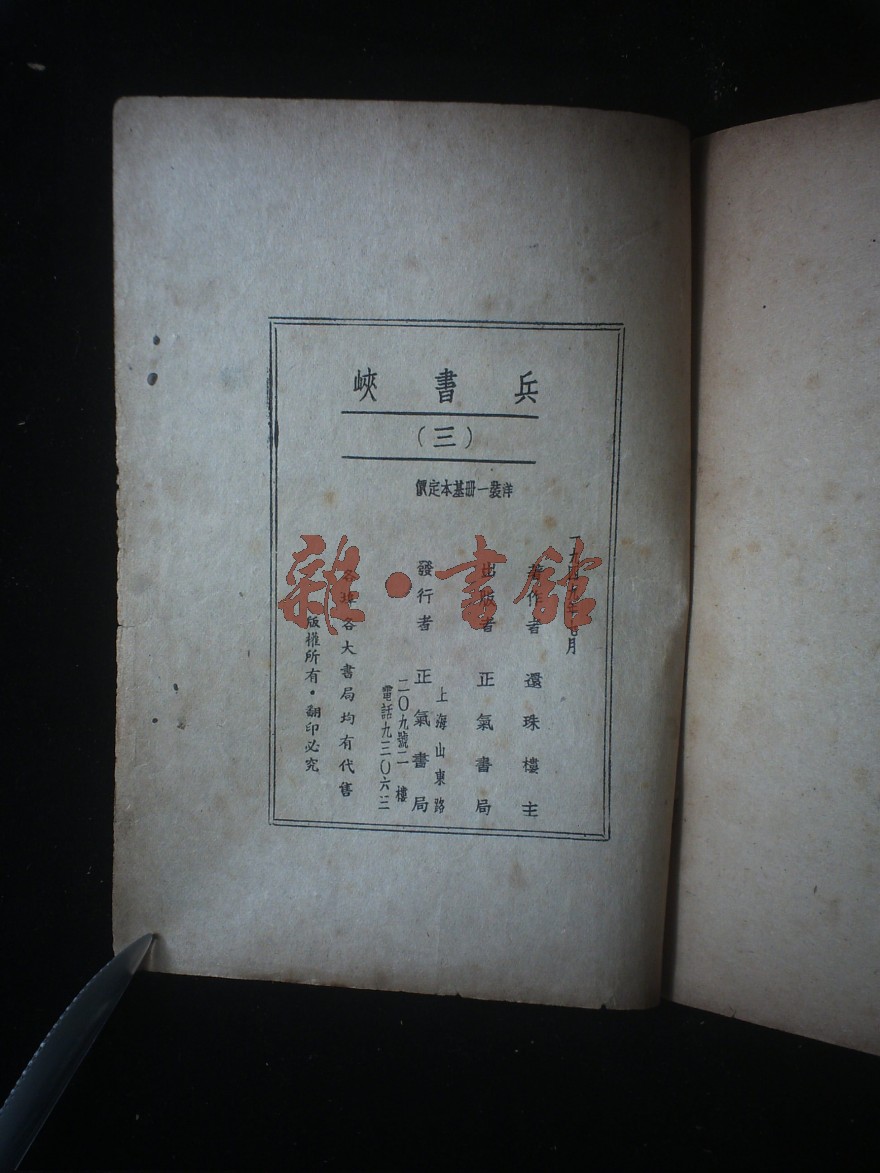 兵書峽
（三）
洋裝一冊基本定價
著作者 還珠樓主
出版者 正氣書局
發行者 正氣書局
上海山東路
二〇九號二樓
電話九三〇六三
各大書局均有代售
版權所有・翻印必究
雜・書館